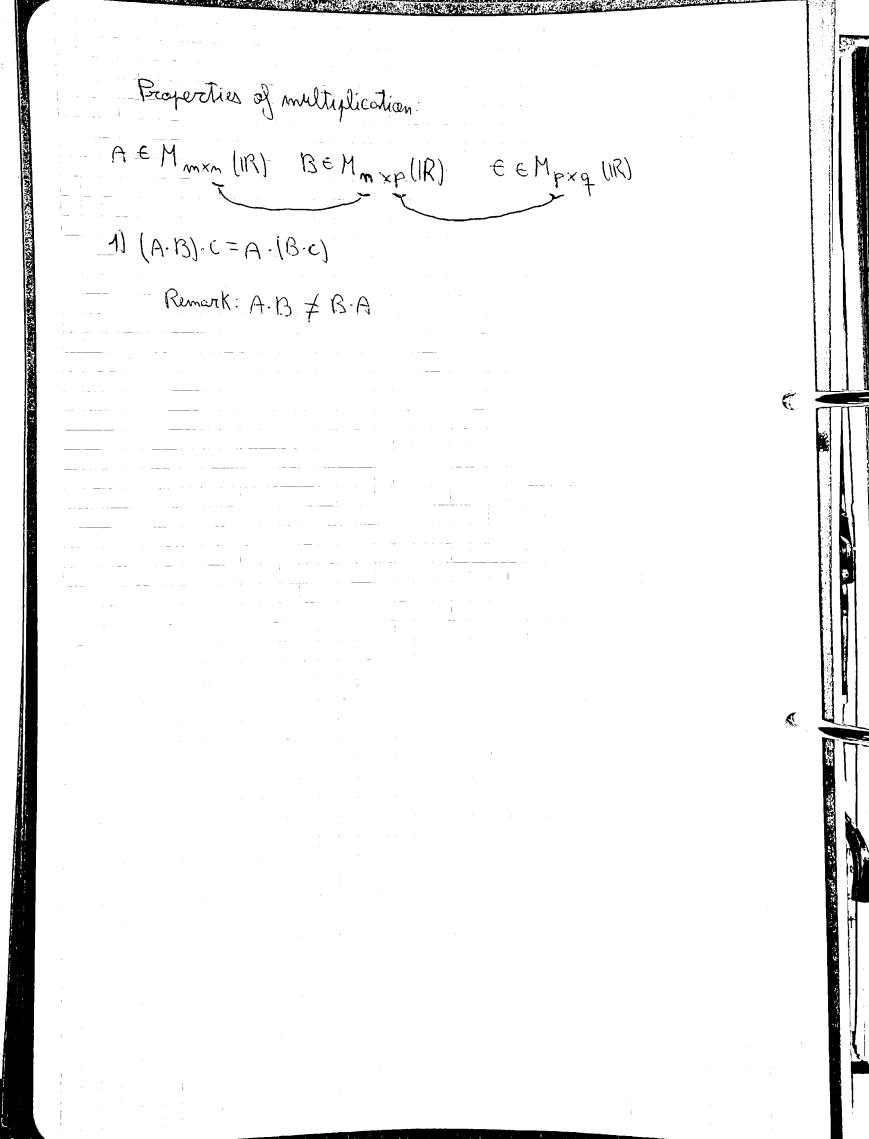 Properties of multiplication:
A ∈ M m×n (ℝ) B ∈ M n×p (ℝ) C ∈ M p×q (ℝ)
1) (A·B)·C = A·(B·C)
Remark: A·B ≠ B·A